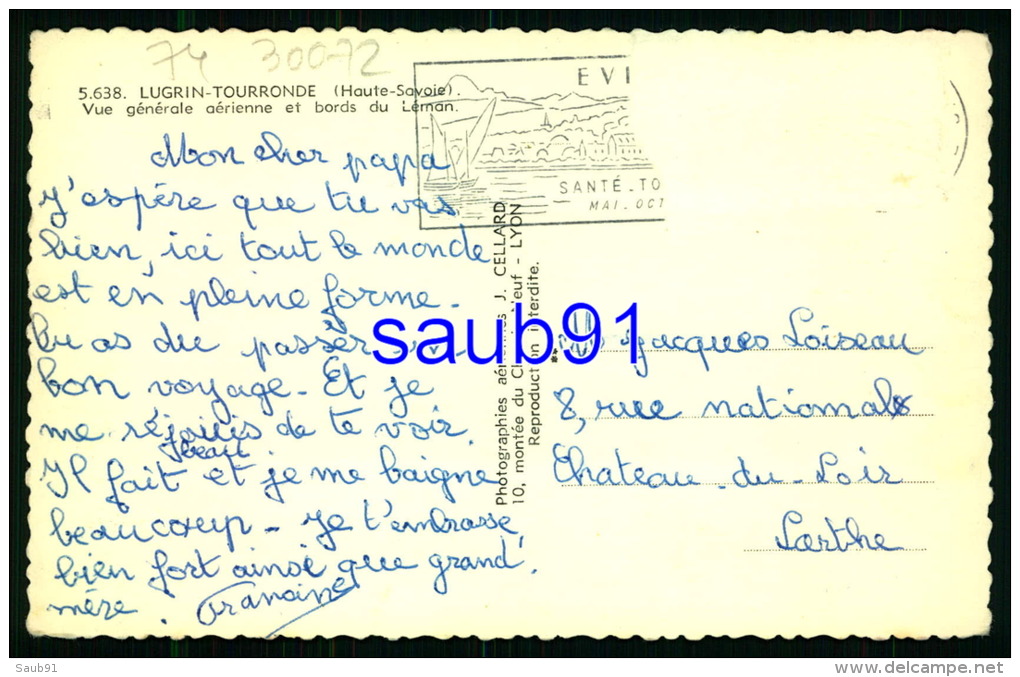 74 30072
5.638. LUGRIN-TOURRONDE (Haute-Savoie).
Vue générale aérienne et bords du Léman.
EVI
SANTÉ_TO
MAI. OCT
Mon cher papa
J'espére que tu vas
bien, ici tout le monde
est en pleine forme.
tu as du passer un
bon voyage. Et je
me réjouis de te voir.
beau
Il fait et je me baigne
beaucoup. Je t'embrasse
bien fort ainsi que grand'
mère. Francine
Photographies aériennes J. CELLARD
10, montée du Ch Neuf - LYON
Reproduction interdite.
saub91
Jacques Loiseau
8, rue nationale
Chateau-du-Loir
Sarthe
Saub91
http://www.delcampe.net